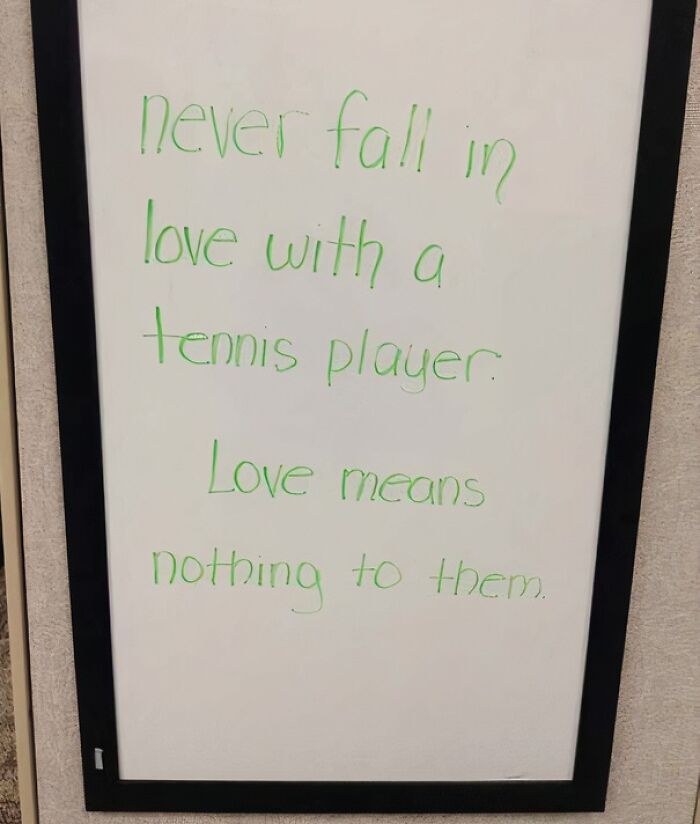 never fall in
love with a
tennis player.
Love means
nothing to them.